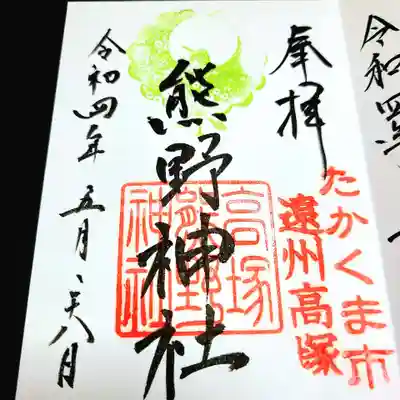 奉拝
たかくま市
遠州高塚
熊野神社
高塚
熊野
神社
令和四年 五月二十八日
令和四年